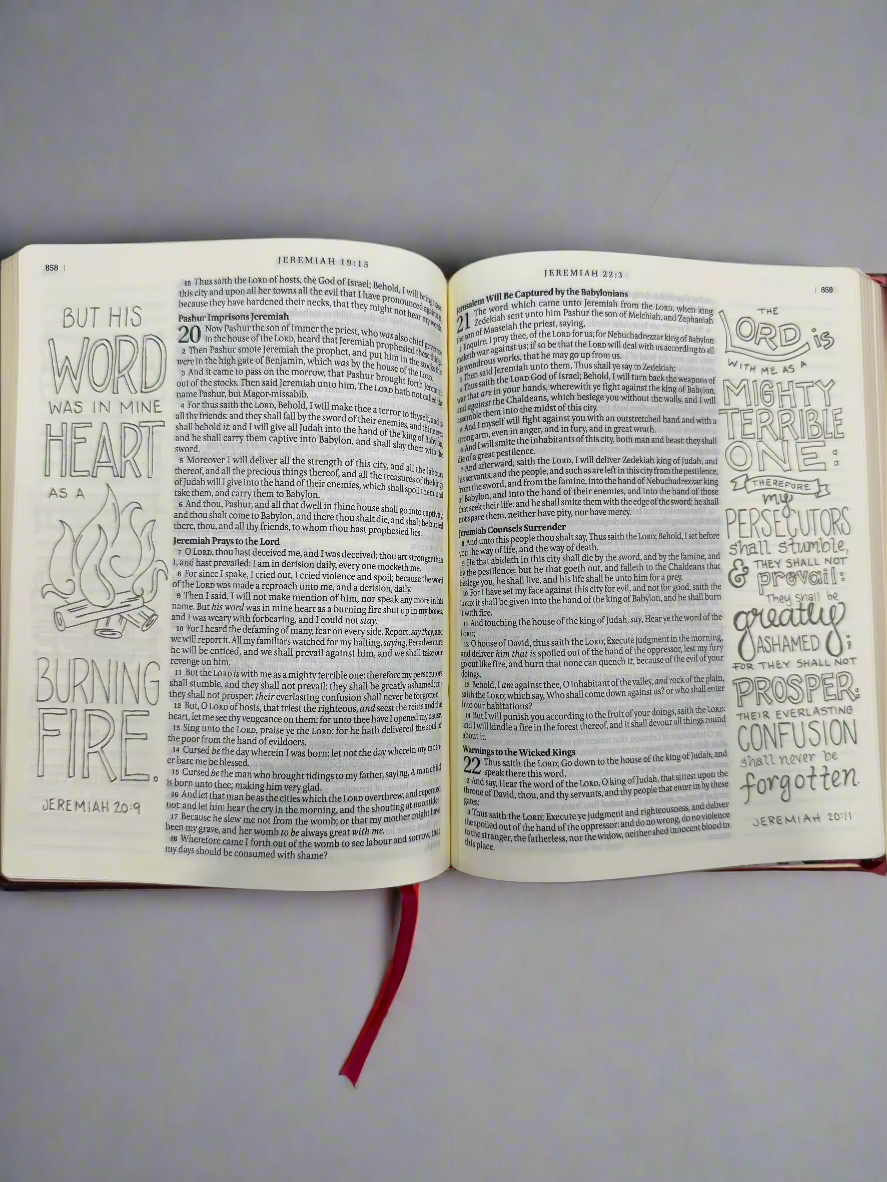 858
JEREMIAH 19:15
BUT HIS
WORD
WAS IN MINE
HEART
AS A
BURNING
FIRE.
JEREMIAH 20:9
15 Thus saith the LORD of hosts, the God of Israel; Behold, I will bring upon
this city and upon all her towns all the evil that I have pronounced against it,
because they have hardened their necks, that they might not hear my words.
Pashur Imprisons Jeremiah
20 Now Pashur the son of Immer the priest, who was also chief governor
in the house of the LORD, heard that Jeremiah prophesied these things.
2 Then Pashur smote Jeremiah the prophet, and put him in the stocks that
were in the high gate of Benjamin, which was by the house of the LORD.
3 And it came to pass on the morrow, that Pashur brought forth Jeremiah
out of the stocks. Then said Jeremiah unto him, The LORD hath not called thy
name Pashur, but Magor-missabib.
4 For thus saith the LORD, Behold, I will make thee a terror to thyself, and to
all thy friends: and they shall fall by the sword of their enemies, and thine eyes
shall behold it: and I will give all Judah into the hand of the king of Babylon,
and he shall carry them captive into Babylon, and shall slay them with the
sword.
5 Moreover I will deliver all the strength of this city, and all the labours
thereof, and all the precious things thereof, and all the treasures of the kings
of Judah will I give into the hand of their enemies, which shall spoil them, and
take them, and carry them to Babylon.
6 And thou, Pashur, and all that dwell in thine house shall go into captivity:
and thou shalt come to Babylon, and there thou shalt die, and shalt be buried
there, thou, and all thy friends, to whom thou hast prophesied lies.
Jeremiah Prays to the Lord
7 O LORD, thou hast deceived me, and I was deceived: thou art stronger than
I, and hast prevailed: I am in derision daily, every one mocketh me.
8 For since I spake, I cried out, I cried violence and spoil; because the word
of the LORD was made a reproach unto me, and a derision, daily.
9 Then I said, I will not make mention of him, nor speak any more in his
name. But his word was in mine heart as a burning fire shut up in my bones,
and I was weary with forbearing, and I could not stay.
10 For I heard the defaming of many, fear on every side. Report, say they, and
we will report it. All my familiars watched for my halting, saying, Peradventure
he will be enticed, and we shall prevail against him, and we shall take our
revenge on him.
11 But the LORD is with me as a mighty terrible one: therefore my persecutors
shall stumble, and they shall not prevail: they shall be greatly ashamed; for
they shall not prosper: their everlasting confusion shall never be forgotten.
12 But, O LORD of hosts, that triest the righteous, and seest the reins and the
heart, let me see thy vengeance on them: for unto thee have I opened my cause.
13 Sing unto the LORD, praise ye the LORD: for he hath delivered the soul of
the poor from the hand of evildoers.
14 Cursed be the day wherein I was born: let not the day wherein my mother
bare me be blessed.
15 Cursed be the man who brought tidings to my father, saying, A man child
is born unto thee; making him very glad.
16 And let that man be as the cities which the LORD overthrew, and repented
not: and let him hear the cry in the morning, and the shouting at noontide;
17 Because he slew me not from the womb; or that my mother might have
been my grave, and her womb to be always great with me.
18 Wherefore came I forth out of the womb to see labour and sorrow, that
my days should be consumed with shame?
JEREMIAH 22:3
859
Jerusalem Will Be Captured by the Babylonians
21 The word which came unto Jeremiah from the LORD, when king
Zedekiah sent unto him Pashur the son of Melchiah, and Zephaniah
the son of Maaseiah the priest, saying,
2 Enquire, I pray thee, of the LORD for us; for Nebuchadrezzar king of Babylon
maketh war against us; if so be that the LORD will deal with us according to all
his wondrous works, that he may go up from us.
3 Then said Jeremiah unto them, Thus shall ye say to Zedekiah:
4 Thus saith the LORD God of Israel; Behold, I will turn back the weapons of
war that are in your hands, wherewith ye fight against the king of Babylon,
and against the Chaldeans, which besiege you without the walls, and I will
assemble them into the midst of this city.
5 And I myself will fight against you with an outstretched hand and with a
strong arm, even in anger, and in fury, and in great wrath.
6 And I will smite the inhabitants of this city, both man and beast: they shall
die of a great pestilence.
7 And afterward, saith the LORD, I will deliver Zedekiah king of Judah, and
his servants, and the people, and such as are left in this city from the pestilence,
from the sword, and from the famine, into the hand of Nebuchadrezzar king
of Babylon, and into the hand of their enemies, and into the hand of those
that seek their life: and he shall smite them with the edge of the sword; he shall
not spare them, neither have pity, nor have mercy.
Jeremiah Counsels Surrender
8 And unto this people thou shalt say, Thus saith the LORD; Behold, I set before
you the way of life, and the way of death.
9 He that abideth in this city shall die by the sword, and by the famine, and
by the pestilence: but he that goeth out, and falleth to the Chaldeans that
besiege you, he shall live, and his life shall be unto him for a prey.
10 For I have set my face against this city for evil, and not for good, saith the
LORD: it shall be given into the hand of the king of Babylon, and he shall burn
it with fire.
11 And touching the house of the king of Judah, say, Hear ye the word of the
LORD;
12 O house of David, thus saith the LORD; Execute judgment in the morning,
and deliver him that is spoiled out of the hand of the oppressor, lest my fury
go out like fire, and burn that none can quench it, because of the evil of your
doings.
13 Behold, I am against thee, O inhabitant of the valley, and rock of the plain,
saith the LORD; which say, Who shall come down against us? or who shall enter
into our habitations?
14 But I will punish you according to the fruit of your doings, saith the LORD:
and I will kindle a fire in the forest thereof, and it shall devour all things round
about it.
Warnings to the Wicked Kings
22 Thus saith the LORD; Go down to the house of the king of Judah, and
speak there this word,
2 And say, Hear the word of the LORD, O king of Judah, that sittest upon the
throne of David, thou, and thy servants, and thy people that enter in by these
gates:
3 Thus saith the LORD; Execute ye judgment and righteousness, and deliver
the spoiled out of the hand of the oppressor: and do no wrong, do no violence
to the stranger, the fatherless, nor the widow, neither shed innocent blood in
this place.
THE
LORD is
WITH ME AS A
MIGHTY
TERRIBLE
ONE:
THEREFORE
my
PERSECUTORS
shall stumble,
& THEY SHALL NOT
prevail:
They shall be
greatly
ASHAMED;
FOR THEY SHALL NOT
PROSPER:
THEIR EVERLASTING
CONFUSION
shall never be
forgotten.
JEREMIAH 20:11